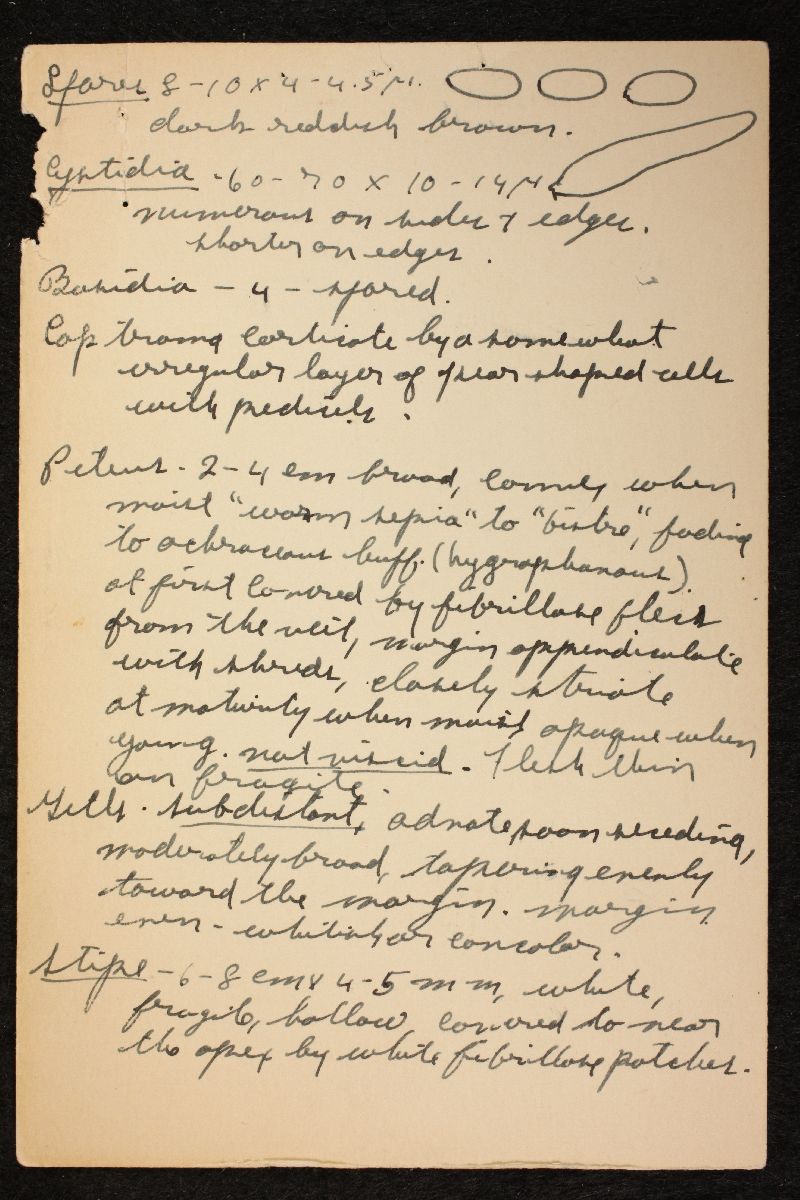 Spores 8-10 x 4-4.5 µ.
dark reddish brown.
Cystidia - 60-70 x 10-14 µ
numerous on sides & edges.
shorter on edges.
Basidia - 4 - spored.
Cap trama corticate by a somewhat
irregular layer of pear shaped cells
with pedicels.
Pileus - 2-4 cm broad, convex when
moist "warm sepia" to "bistre", fading
to ochraceous buff. (hygrophanous)
at first covered by fibrillose flecks
from the veil, margin appendiculate
with shreds, closely striate
at maturity when moist opaque when
young. not viscid. Flesh thin
an fragile.
Gills - subdistant, adnate, soon seceding,
moderately broad, tapering evenly
toward the margin. margin
even - whitish or concolor.
Stipe - 6-8 cm x 4-5 mm, white,
fragile, hollow, covered to near
the apex by white fibrillose patches.